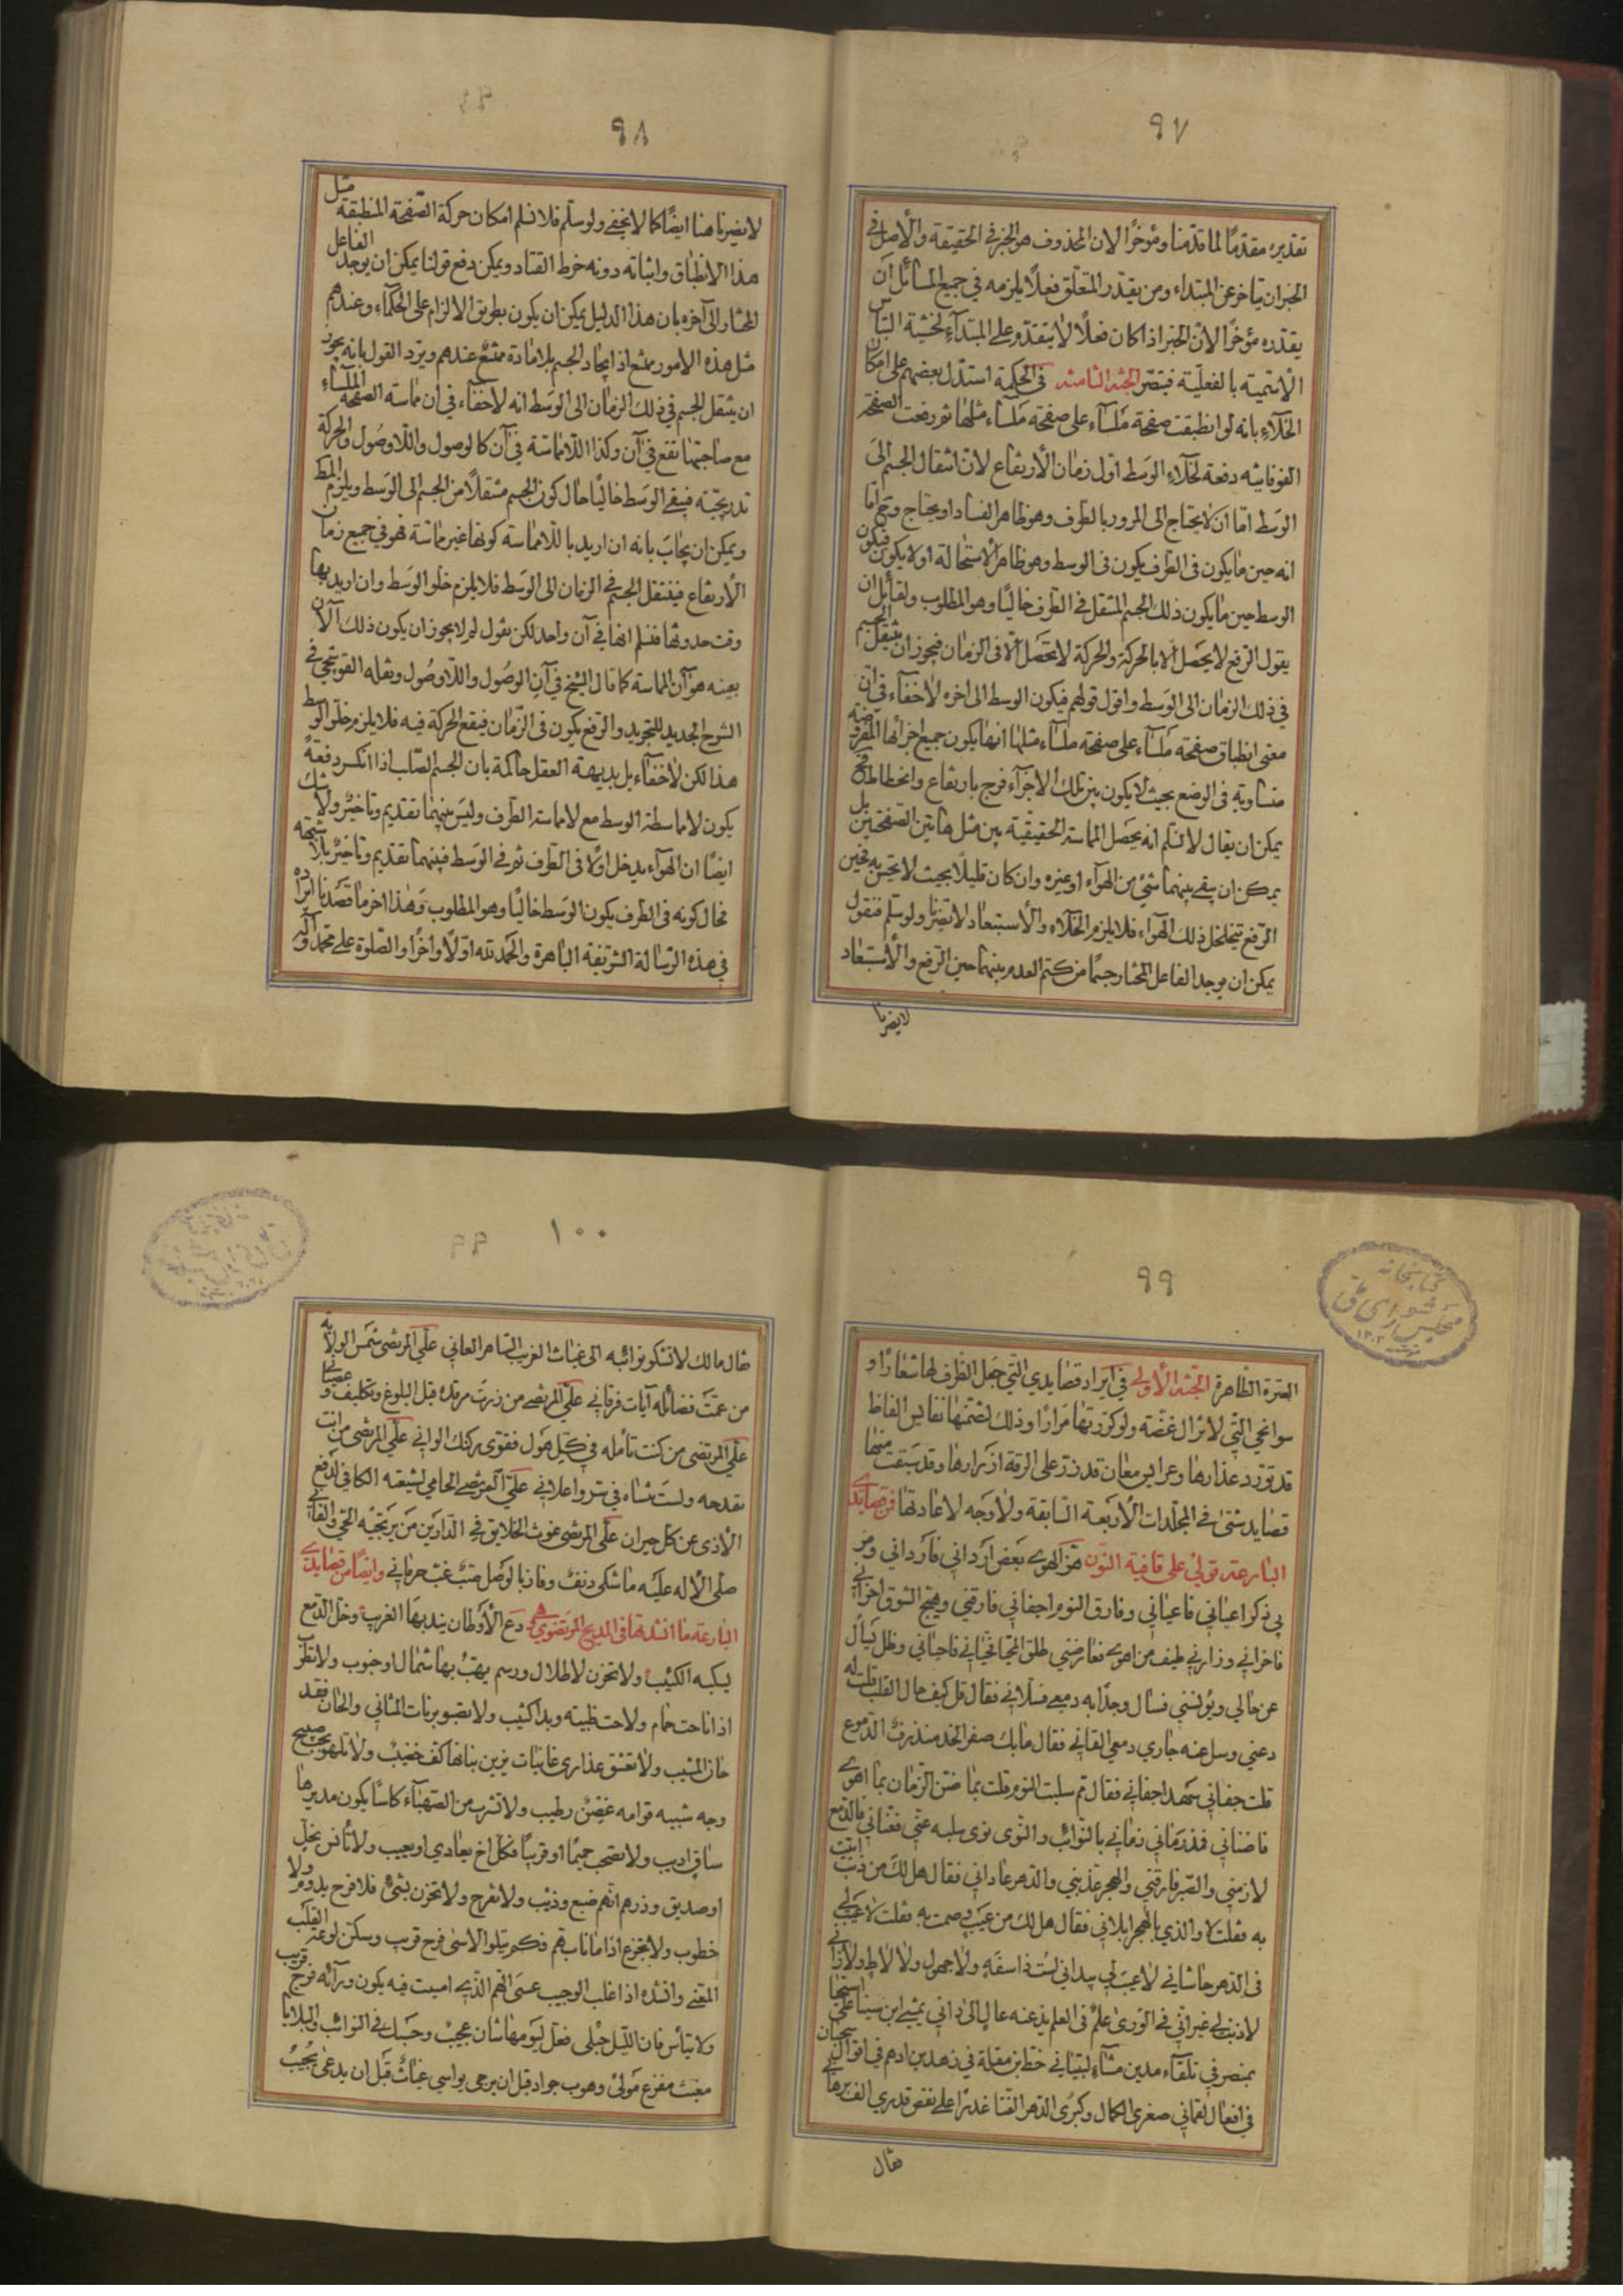 ٩٧
تقديره مقدّمًا لما قدّمنا ومؤخرًا لان المحذوف هو الخبر في الحقيقة والأصل في
الخبر ان يتاخر عن المبتداء ومن يقدّر المتعلّق فعلًا يلزمه في جميع المسائل ان
يقدّره مؤخرًا لانّ الخبر اذا كان فعلًا لا يتقدّم على المبتدآء لخشية التباس
الأسمية بالفعليّة فتبصّر الجثة الثامنة في الحكمة استدلّ بعضهم على امكان
الخلآء بانه لو انطبقت صفحة مَلسآء على صفحة مَلسآء مثلها ثم رفعت الصفحة
الفوقانيّه دفعة لخلآء الوَسط اوّل زمان الأرتفاع لانّ انتقال الجسم الىَ
الوَسَط امّا ان لا يحتاج الى المرور بالطرف وهو ظاهر الفساد او يحتاج وح امّا
انه حين ما يكون في الطرف يكون في الوسط وهو ظاهر الاستحالة او لا يكون فيكون
الوسط حين ما يكون ذلك الجسم المنتقل في الطرف خاليًا وهو المطلوب ولقائل ان
يقول الرفع لا يحصَل الّا بالحركة والحركة لا تحصَل الّا في الزمان فيجوز ان ينتقل الجسم
في ذلك الزمان الى الوَسَط واقول قولهم فيكون الوسط الى اخره لاخفآء في ان
معنى انطباق صفحة مَلسآء على صفحة ملسآء مثلها انها يكون جميع اجزائها المفروضة
متساوية في الوضع بحيث لا يكون بين تلك الاجزآء فرج بارتفاع وانخطاط فح
يمكن ان يقال لا نسلّم انه يحصَل المماسة الحقيقيّة بين مثل هاتين الصفحتين بل
يمكن ان يبقى بينهما شئ من الهوآء او غيره وان كان قليلًا بحيث لا يحسّ به فحين
الرفع يتخلخل ذلك الهوآء فلا يلزم الخلآء والأستبعاد لا يضرّنا ولو سلّم فنقول
يمكن ان يوجد الفاعل المختار جسمًا من كتم العدم بينهما حين الرفع والأستبعاد
لا يضرنا
٩٨
لا يضرّنا هنا ايضًا كما لا يخفى ولو سلّم فلا نسلّم امكان حركة الصّفحة المنطبقة مثل
هذا الانطباق واثباته دونه خرط القتاد ويمكن دفع قولنا يمكن ان يوجد الفاعل
المختار الى آخره بان هذا الدليل يمكن ان يكون بطريق الالزام على الحكمآء وعندهم
مثل هذه الامور ممتنع اذ ايجاد الجسم بلا مادة ممتنع عندهم ويردّ القول بانه يجوز
ان ينتقل الجسم في ذلك الزمان الى الوَسَط انه لا خفآء في ان مماسة الصفحة الملسآء
مع صاحبتها تقع في آن وكذا اللّامماسّة في آن كالوصول واللّاوصُول والحركة
تدريجيّة فيبقى الوَسَط خاليًا حال كون الجسم منتقلًا من الجسم الى الوَسط ويلزم المط
ويمكن ان يجابَ بانه ان اريد باللامماسة كونها غير مماسّة فهو في جميع زمان
الأرتفاع فينتقل الجسم في الزمان الى الوَسَط فلا يلزم خلو الوَسَط وان اريد بها
وقت حدوثها فنسلم انها في آن واحد لكن نقول لم لا يجوز ان يكون ذلك الآن
بعينه هو آن المماسة كما قال الشيخ في آن الوصُول واللّاوصُول ونقله القوشجي في
الشرح الجديد للتجريد والرفع يكون في الزّمان فيقع الحركة فيه فلا يلزم خلو الوسط
هذا لكن لاخفآء بل بديهة العقل حاكمة بان الجسم الصّلب اذا انكسر دفعة
يكون لا مماسة الوسط مع لا مماسة الطرف وليس بينهما تقديم وتاخيرٌ ولا شك
ايضًا ان الهوآء يدخل اولًا في الطرف ثم في الوَسَط فبينهما تقديم وتاخيرٌ بلا شبهة
فحال كونه في الطرف يكون الوَسَط خاليًا وهو المطلوب وَهٰذا اخر ما قصَدنا ايراده
في هذه الرّسالة الشريفة الباهرة والحمد لله اولًا واخرًا والصّلوة على محمد وآله
٩٩
العترة الطّاهرة الجثة الأولى في ايراد قصايدي التّي جعل الظّرف لها شعارًا و
سوانحي التّي لا تزال غضّة ولو كرّرتها مرَارًا وذلك لتضمّنها نفايس الفاظ
قد تورّد عذارها وعرايس معان قد زرّ على الرقة ازرارها وقد سبَقت منها
قصايد شتّى في المجلدات الأربعة السّابقة ولا وَجه لاعادتها فمن قصايدي
البارعة قولي على قافية النّون هَمز الهوى بَعض اركاني فارداني ومر
بي ذكر اعياني فاعياني وفارق النوم اجفاني فارقني وهيّج الشوق احزاني
فاخزاني وزارني طيف من اهوى فعارضني طلق المحيّا فحيّاني فاحياني وظل يسأل
عن حالي ويؤنسني فسال وجدًا به دمعي فسلاني فقال قل كيف حال القلب قلت له
دعني وسل عنه جاري دمعي القاني فقال ما بك صفر الخدّ منذرفُ الدّموع
قلت جفاني سَهّد اجفاني فقال ثم سلبت النوم قلت بما ضنّ الزّمان بما اهوى
فاضناني فقد رَماني زماني بالنوائب والنوى نوى سلبه عنّي فعنّاني فالدّمع
لازمني والصّبر فارقني والهجر عذّبني والدّهر عاداني فقال هل لك من ذنب اتيت
به فقلت لا والذي بالهجر ابلاني فقال هل لك من عَيب وصمت به فقلت لا عيب لي
في الدّهر حاشاني لا عيبَ لي بيد اني لست ذا سفه ولا جهول ولا لاط ولا زاني
لا ذنب لي غير انّي في الورى علمٌ في العلم يذعنه عال الى داني يمنى ابن سينا على استحيا
بمنصرفي تلقآء مدين مشآء لتبياني خط بن مقلة في زهد بن ادهم في اقوال سحبان
في افعال لقماني صغرى الكمال وكبرى الدّهر الفتا غدرًا على نقص قدري الف برهاني
فقال
١٠٠
فقال مالك لا تشكو نوائبه الى غياث الغريب السّاهر العاني عليّ المرتضى شمس الولاية
من عمّت فضائله آيات فرقاني عليّ المرتضى من زرت مرقده قبل البلوغ وتكليف وعصياني
عليّ المرتضى من كنت تأمله في كلّ هول فقوّى ركنك الواني عليّ المرتضى من انت
تمدحه ولستَ تنساه في سرّ واعلاني عليّ المرتضى الحامي لشيعته الكافي لدفع
الأذى عن كلّ حيران عليّ المرتضى غوث الخلايق في الدّارين من يرتجيه الحيّ والفاني
صلّى الأله علَيه ما شكى دنفٌ وفاز بالوصل صَبّ غبّ حرماني وايضًا من قصايدي
البارعة ما انشدتها في المديح المرتضوي دَع الأوطان يندبهَا الغريبُ وخل الدّمع
يسكبه الكئيبُ ولا تحزن لاطلال ورسم يهبّ بها شمال او جنوب ولا تطرَب
اذا ناحت حمام ولاحت ظبية وبدا كثيب ولا تصبو برنات المثاني والحان فقد
حان المشيب ولا تعشق عذارى غانيات يزين بنانها كفّ خضيبٌ ولا تلهو بحب صبيح
وجه شبيه قوامه غصنٌ رطيب ولا تشرب من الصّهبآء كاسًا يكون مديرها
ساق اديب ولا تصحب حميمًا او قريبًا فكلّ اخ يعادي او يعيب ولا تأنس بخلّ
او صديق وذرهم انّهم ضبع وذئب ولا تفرح ولا تحزن بشئ فلا فرح يدوم ولا
خطوب ولا تجزع اذا ما ناب هم فكم يتلو الاسَى فرح قريب وسكّن لوعة القلب
المعنّى وانشده اذا غلب الوجيب عسَى الهَمّ الّذي امسيت فيه يكون ورآئه فرج قريب
ولا تيأس فان اللّيل حُبلى فعلّ ليَومها شان عجيبٌ وحَسبك في النوائب والبلايا
مغيث مفزع مَولىً وهوب جواد قبل ان يرجى يواسي غياثٌ قَبل ان يدعى يُجيبُ
كتابخانه
مجلس شوراى ملّى